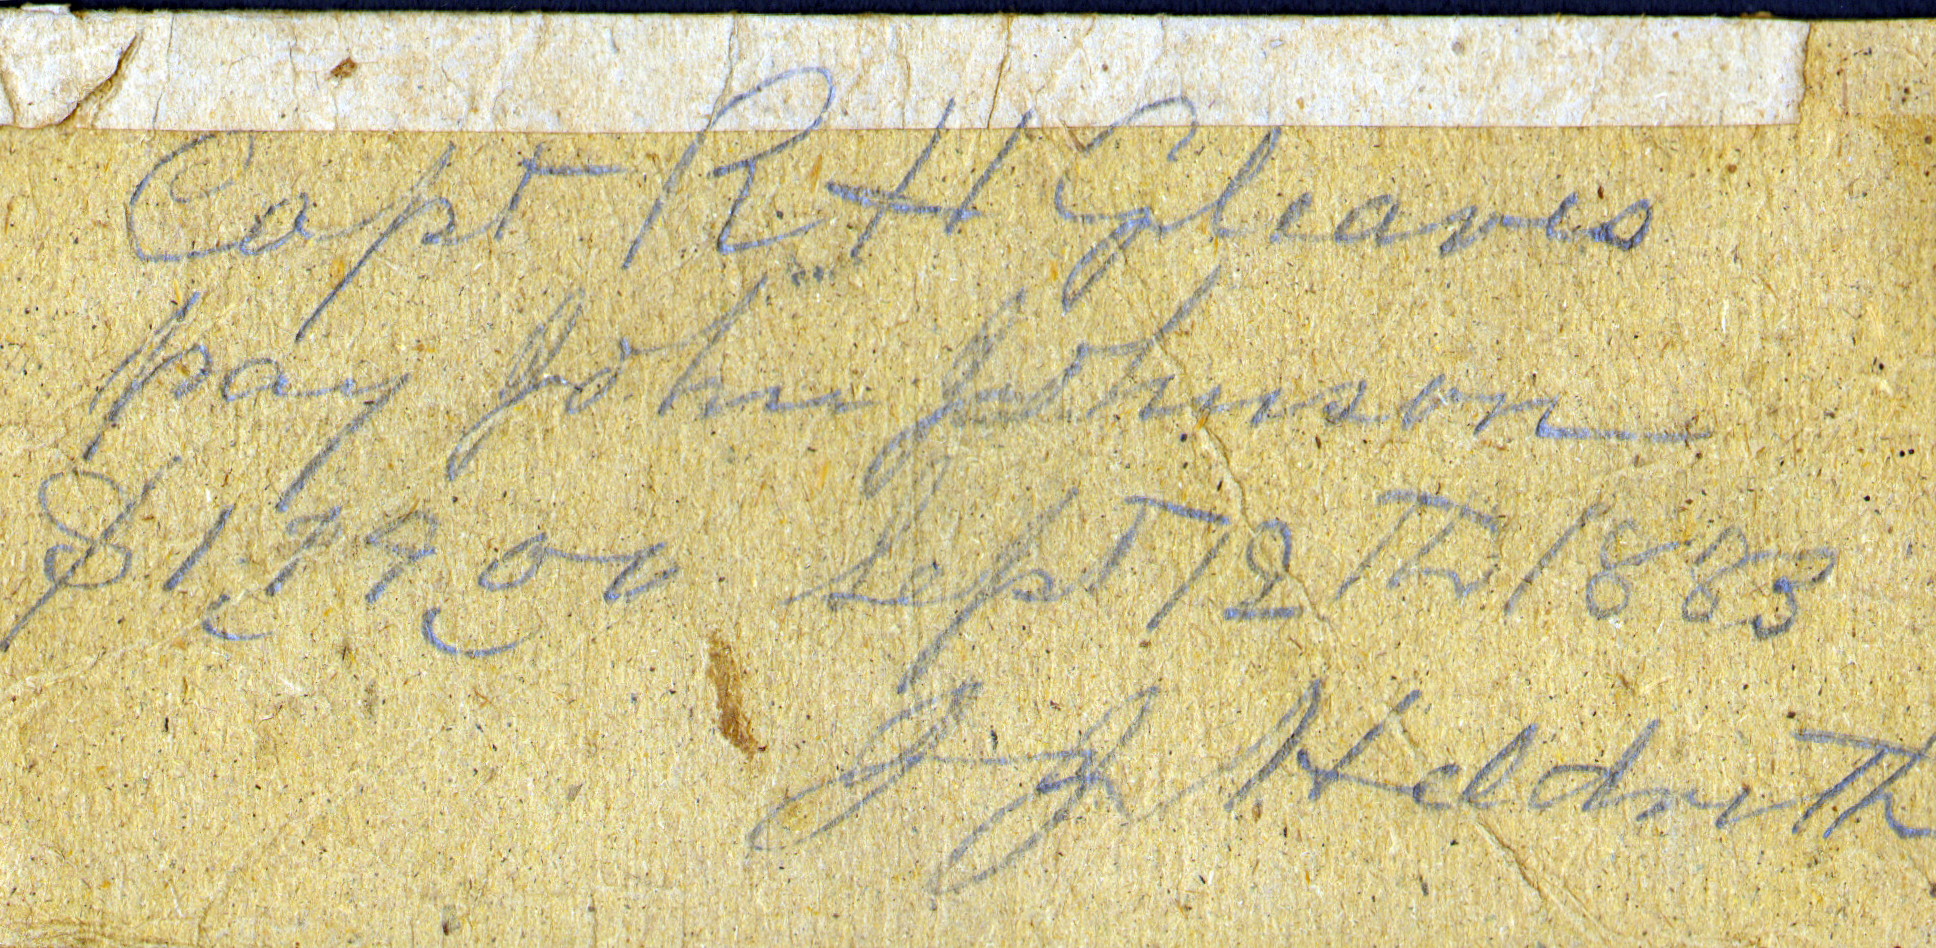 Capt R H Gleaves
pay John Johnson
$ 179 00 Sept 12 Th 1883
J J Heldreth